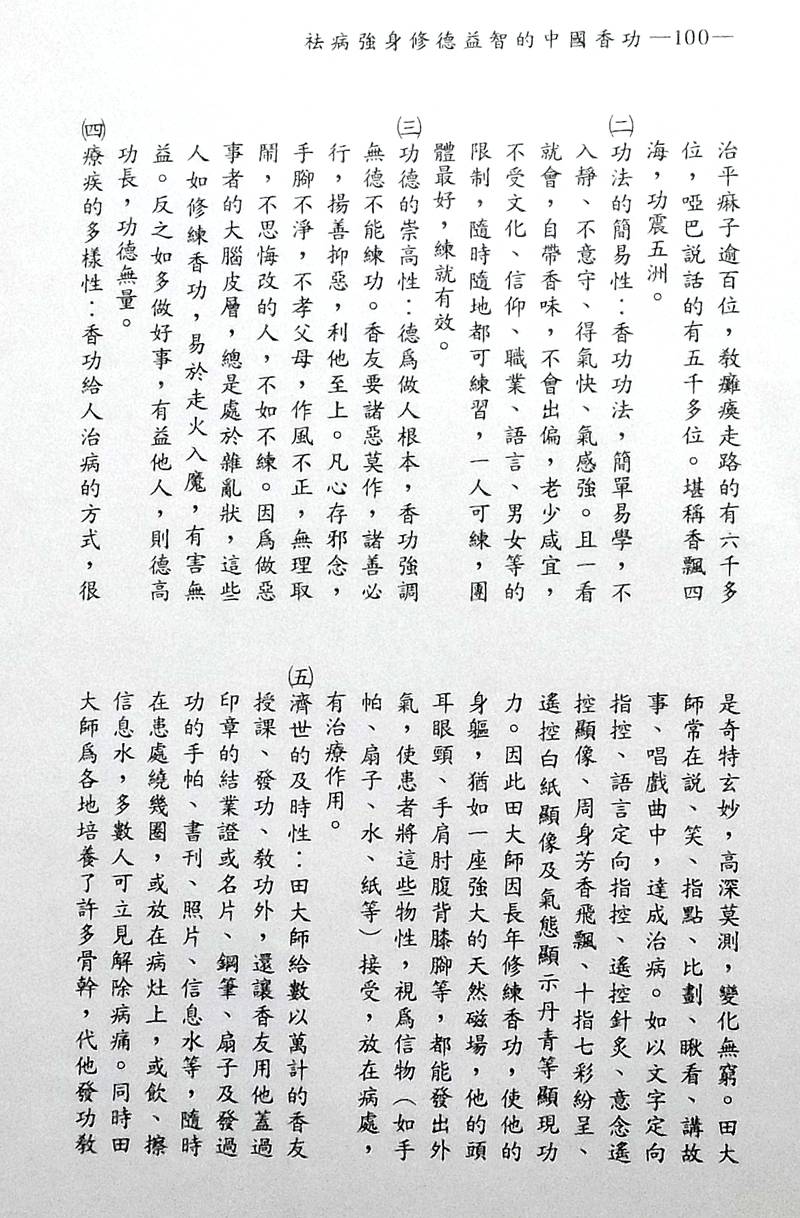 祛病強身修德益智的中國香功—100—
治平痳子逾百位，教癱瘓走路的有六千多
位，啞巴説話的有五千多位。堪稱香飄四
海，功震五洲。
㈡功法的簡易性：香功功法，簡單易學，不
入靜、不意守、得氣快、氣感強。且一看
就會，自帶香味，不會出偏，老少咸宜，
不受文化、信仰、職業、語言、男女等的
限制，隨時隨地都可練習，一人可練，團
體最好，練就有效。
㈢功德的崇高性：德爲做人根本，香功強調
無德不能練功。香友要諸惡莫作，諸善必
行，揚善抑惡，利他至上。凡心存邪念，
手腳不淨，不孝父母，作風不正，無理取
鬧，不思悔改的人，不如不練。因爲做惡
事者的大腦皮層，總是處於雜亂狀，這些
人如修練香功，易於走火入魔，有害無
益。反之如多做好事，有益他人，則德高
功長，功德無量。
㈣療疾的多樣性：香功給人治病的方式，很
是奇特玄妙，高深莫測，變化無窮。田大
師常在説、笑、指點、比劃、瞅看、講故
事、唱戲曲中，達成治病。如以文字定向
指控、語言定向指控、遙控針炙、意念遙
控顯像、周身芳香飛飄、十指七彩紛呈、
遙控白紙顯像及氣態顯示丹青等顯現功
力。因此田大師因長年修練香功，使他的
身軀，猶如一座強大的天然磁場，他的頭
耳眼頸、手肩肘腹背膝腳等，都能發出外
氣，使患者將這些物性，視爲信物（如手
帕、扇子、水、紙等）接受，放在病處，
有治療作用。
㈤濟世的及時性：田大師給數以萬計的香友
授課、發功、教功外，還讓香友用他蓋過
印章的結業證或名片、鋼筆、扇子及發過
功的手帕、書刊、照片、信息水等，隨時
在患處繞幾圈，或放在病灶上，或飲、擦
信息水，多數人可立見解除病痛。同時田
大師爲各地培養了許多骨幹，代他發功教